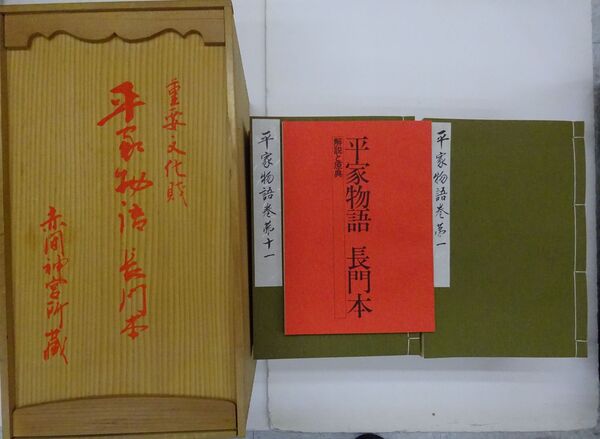 重要文化財
平家物語 長門本
赤間神宮所蔵
平家物語巻第十一
平家物語 長門本
解説と原典
平家物語巻第一